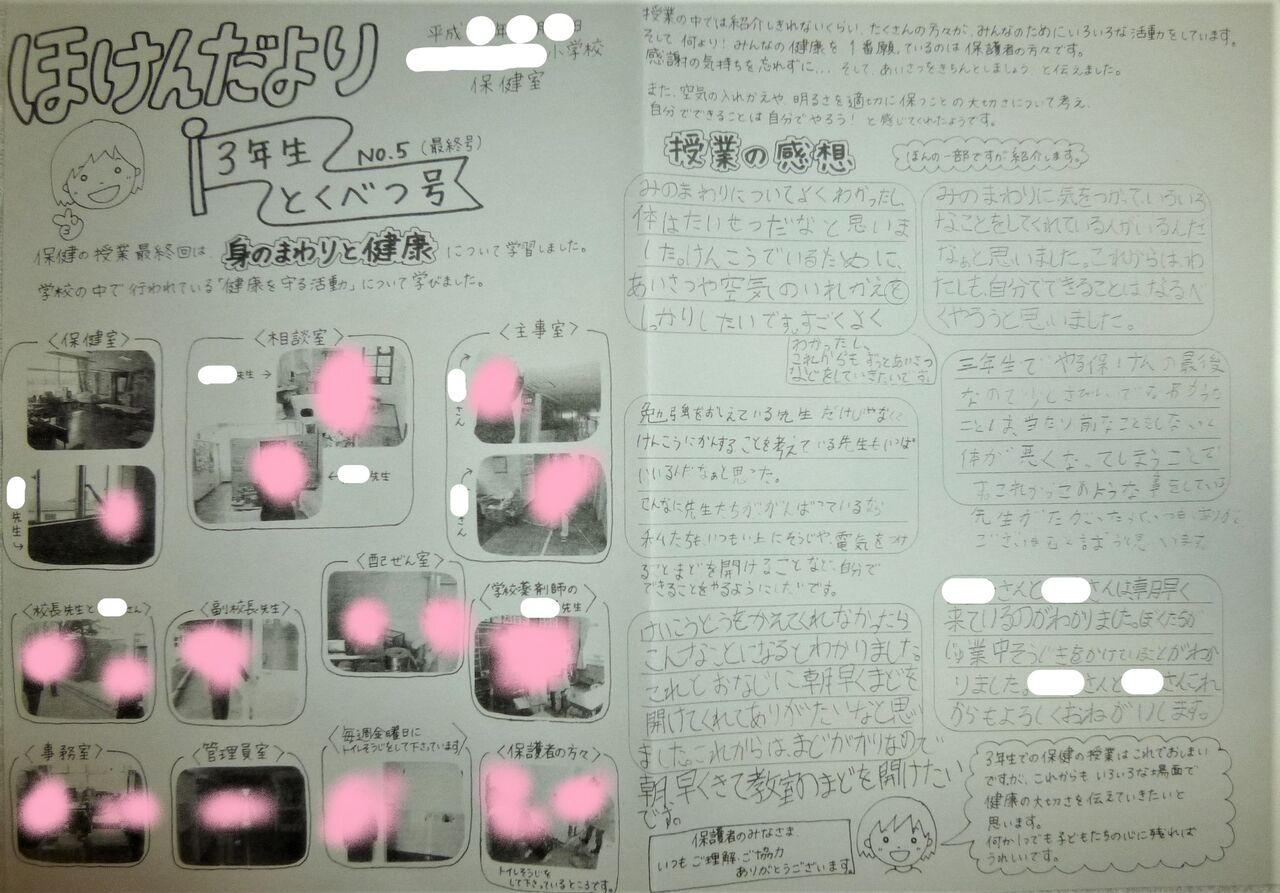 ほけんだより
平成 年 日
小学校
保健室
3年生 NO.5（最終号）
とくべつ号
保健の授業最終回は、身のまわりと健康について学習しました。
学校の中で行われている「健康を守る活動」について学びました。
〈保健室〉
先生→
〈相談室〉
先生→
←先生
〈主事室〉
さん
さん
〈配ぜん室〉
〈校長先生と さん〉
〈副校長先生〉
〈学校薬剤師の
先生〉
〈事務室〉
〈管理員室〉
〈毎週金曜日に
トイレそうじをして下さっています〉
〈保護者の方々〉
トイレそうじを
して下さっているところです。
授業の中では紹介しきれないくらい、たくさんの方々が、みんなのためにいろいろな活動をしています。
そして何より！みんなの健康を1番願っているのは保護者の方々です。
感謝の気持ちを忘れずに… そして、あいさつをきちんとしましょう と伝えました。
また、空気の入れかえや、明るさを適切に保つことの大切さについて考え、
自分でできることは自分でやろう！と感じてくれたようです。
授業の感想
ほんの一部ですが紹介します。
みのまわりについてよくわかったし、
体はたいせつだなと思いま
した。けんこうでいるために、
あいさつや空気のいれかえを
しっかりしたいです。すごくよく
わかったし、
これからもずっとあいさつ
などをしていきたいです。
勉強をおしえている先生だけじゃなくて
けんこうにかんすることを考えている先生もいっぱ
いいるんだなぁと思った。
そんなに先生たちががんばっているなら
私たちも、いつもい上にそうじや、電気をつけ
ることまどを開けることなど、自分で
できることをやるようにしたいです。
けいこうとうをかえてくれなかったら
こんなことになるとわかりました。
これとおなじに朝早くまどを
開けてくれてありがたいなと思い
ました。これからは、まどがかりなので
朝、早くきて教室のまどを開けたい
です。
保護者のみなさま、
いつもご理解・ご協力
ありがとうございます。
みのまわりに気をつかっていろいろ
なことをしてくれている人がいるんだ
なぁと思いました。これからは、わ
たしも、自分でできることはなるべ
くやろうと思いました。
三年生でやる保けんの最後
なので少しさみしいです
ことは、当たり前なことをしないと
体が悪くなってしまうことで
す。これからこのような事をしている
先生がたが
ございますと言おうと思います。
さんと さんは朝早く
来ているのがわかりました。ぼくたちが
じゅ業中そうじきをかけていることがわか
りました。 さんと さんこれ
からもよろしくおねがいします。
3年生での保健の授業はこれでおしまい
ですが、これからもいろいろな場面で
健康の大切さを伝えていきたいと
思います。
何か1つでも子どもたちの心に残れば
うれしいです。